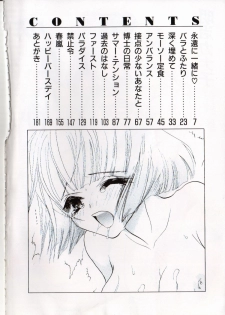 CONTENTS
永遠に一緒に♡ 7
バラとふたり 23
深く埋めて 33
モーソー定食 45
アンバランス 57
接点の少ないあなたと 67
博士の日常 77
サマー・テンション 87
過去のはなし 103
ファースト 119
パラダイス 129
禁止令 147
春嵐 155
ハッピーバースデイ 169
あとがき 181